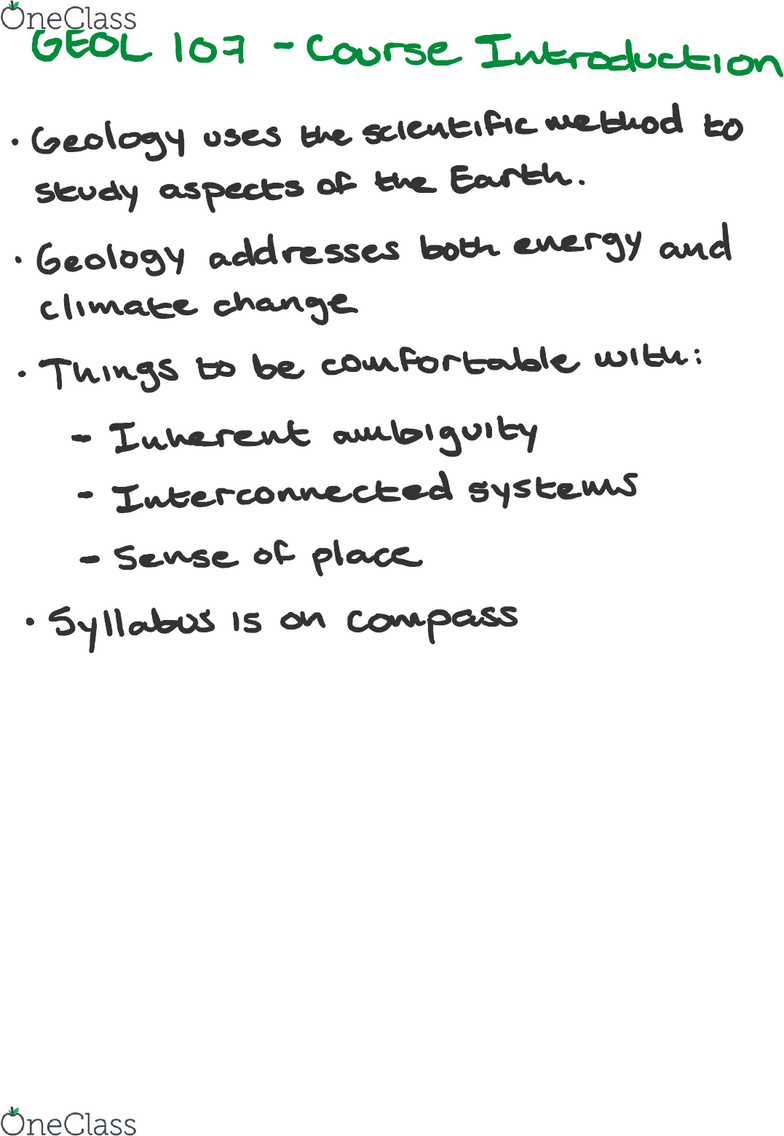 OneClass
GEOL 107 - Course Introduction
· Geology uses the scientific method to
study aspects of the Earth.
· Geology addresses both energy and
climate change
· Things to be comfortable with:
- Inherent ambiguity
- Interconnected systems
- Sense of place
· Syllabus is on compass
OneClass